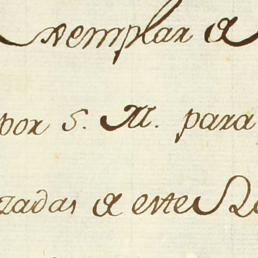 Exemplar a
por S. M. para
zadas a este R